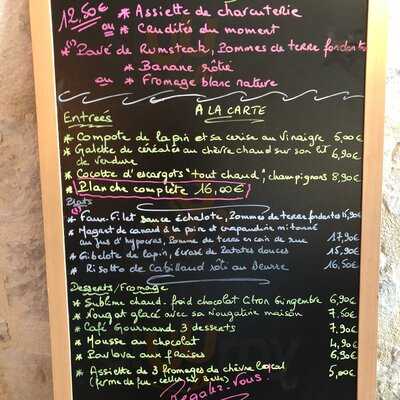 12,50€ * Assiette de charcuterie
ou * Crudités du moment
* Pavé de Rumsteak, Pommes de terre fondantes
* Banane rôtie
ou * Fromage blanc nature
A LA CARTE
Entrées
* Compote de lapin et sa cerise au vinaigre 5,00€
* Galette de céréales au chèvre chaud sur son lit de verdure 6,90€
* Cocotte d'escargots "tout chaud", champignons 8,90€
* Planche complète 16,00€
Plats
* Faux-Filet sauce échalote, Pommes de terre fondantes 15,90€
* Magret de canard à la poire et crapaudine mitonné
au jus d'hypocras, Pomme de terre en coin de rue 17,90€
* Gibelote de lapin, écrasé de Patates douces 15,90€
* Risotto de Cabillaud rôti au Beurre 16,50€
Desserts/Fromage
* Sublime chaud-froid chocolat Citron Gingembre 6,90€
* Nougat glacé avec sa Nougatine maison 7,50€
* Café Gourmand 3 desserts 7,90€
* Mousse au chocolat 4,90€
* Pavlova aux fraises 6,90€
* Assiette de 3 fromages de chèvre local 5,00€
Régalez-vous!